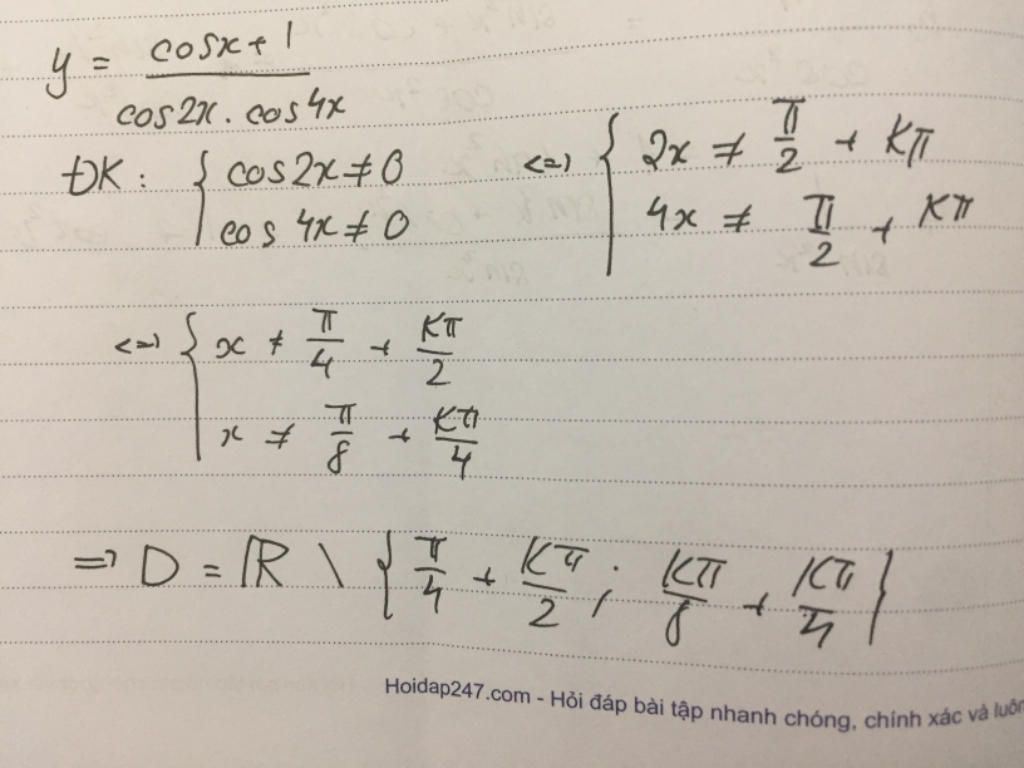 y = (cosx + 1)/(cos2x . cos4x)
ĐK : { cos2x ≠ 0 <=> { 2x ≠ π/2 + Kπ
cos 4x ≠ 0 4x ≠ π/2 + Kπ
<=> { x ≠ π/4 + Kπ/2
x ≠ π/8 + Kπ/4
=> D = ℝ \ { π/4 + Kπ/2 ; Kπ/8 + Kπ/4 }
Hoidap247.com - Hỏi đáp bài tập nhanh chóng, chính xác và luôn